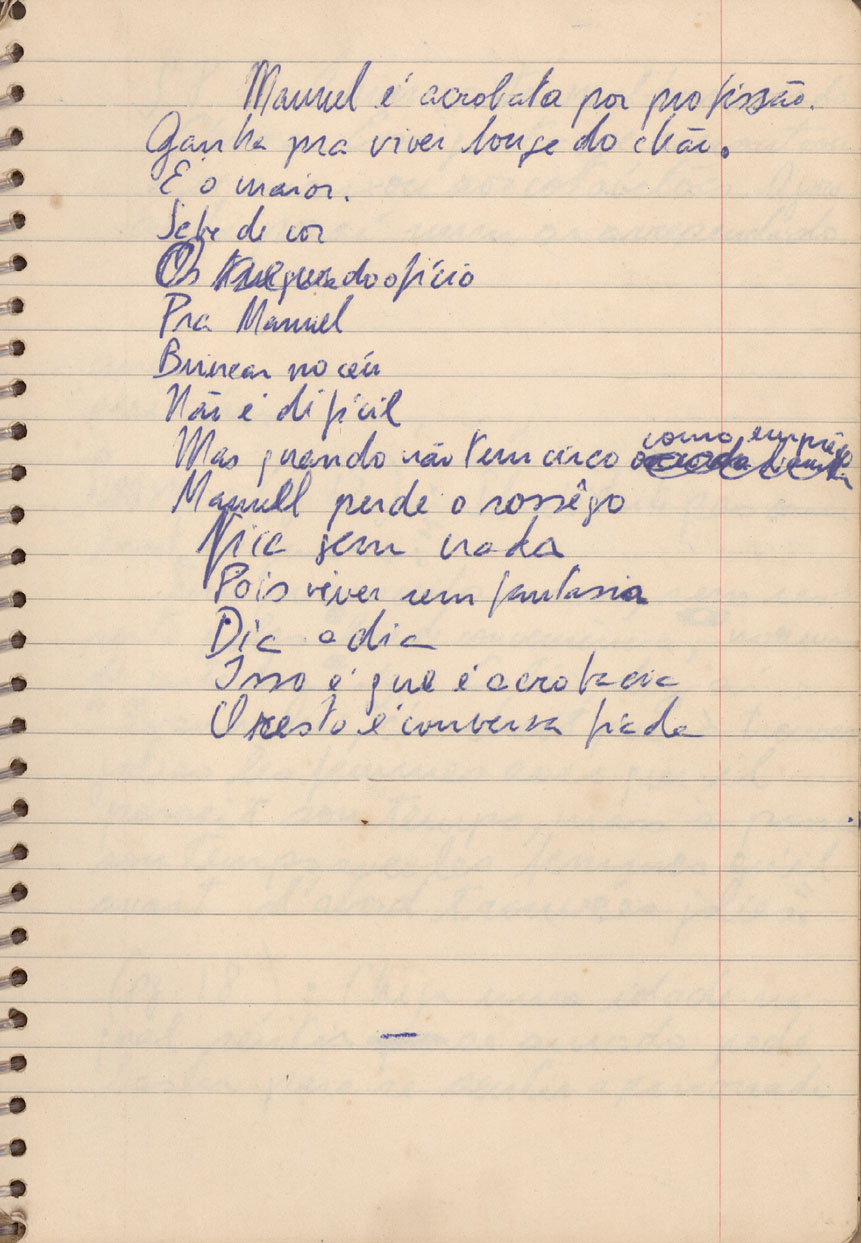 Manuel é acrobata por profissão.
Ganha pra viver longe do chão.
É o maior.
Sabe de cor
Os truques do ofício
Pra Manuel
Brincar no céu
Não é difícil
como emprêgo
Mas quando não tem circo
Manuell perde o sossêgo
Fica sem nada
Pois viver sem fantasia
Dia a dia
Isso é que é acrobacia
O resto é conversa fiada